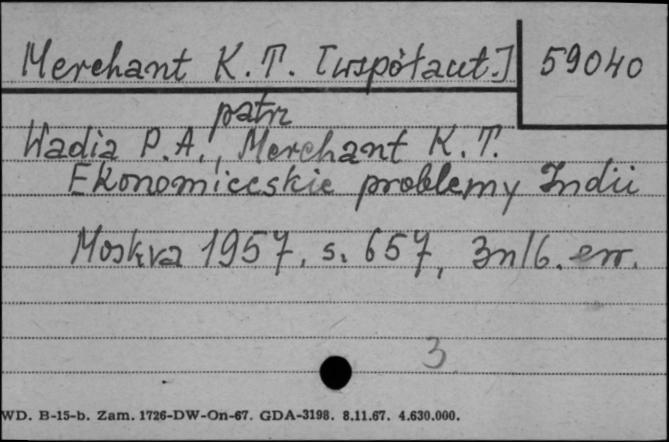 Merchant K. T. [współaut.] 59040
patrz
Wadia P. A., Merchant K. T.
Ekonomiceskie problemy Indii
Moskva 1957, s. 657, 3nlb. err.
3
WD. B-15-b. Zam. 1726-DW-On-67. GDA-3198. 8.11.67. 4.630.000.